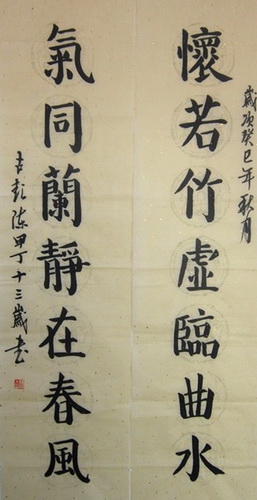 歲次癸巳年秋月
懷若竹虛臨曲水
氣同蘭靜在春風
吉彭陳甲丁十三歲書